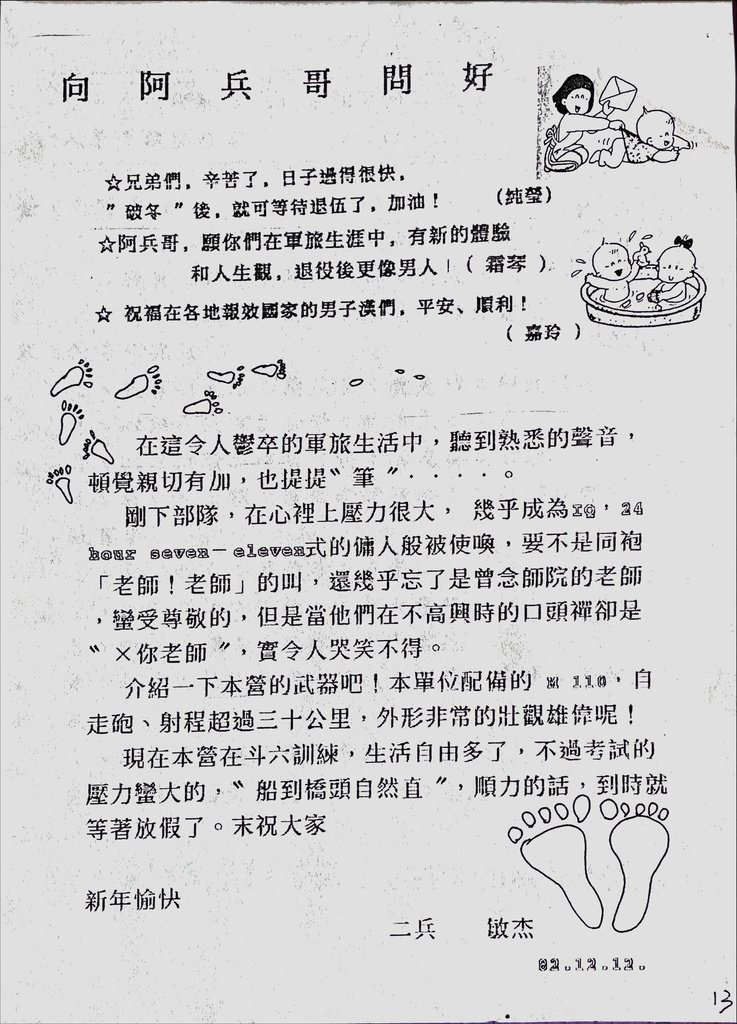 向阿兵哥問好
☆兄弟們，辛苦了，日子過得很快，
〞破冬〞後，就可等待退伍了，加油！（純瑩）
☆阿兵哥，願你們在軍旅生涯中，有新的體驗
和人生觀，退役後更像男人！（霜琴）
☆祝福在各地報效國家的男子漢們，平安、順利！
（嘉玲）
在這令人鬱卒的軍旅生活中，聽到熟悉的聲音，
頓覺親切有加，也提提〝筆〞．．．．。
剛下部隊，在心裡上壓力很大，幾乎成為IQ，24
hour seven－eleven式的傭人般被使喚，要不是同袍
「老師！老師」的叫，還幾乎忘了是曾念師院的老師
，蠻受尊敬的，但是當他們在不高興時的口頭禪卻是
〝×你老師〞，實令人哭笑不得。
介紹一下本營的武器吧！本單位配備的 M 110，自
走砲、射程超過三十公里，外形非常的壯觀雄偉呢！
現在本營在斗六訓練，生活自由多了，不過考試的
壓力蠻大的，〝船到橋頭自然直〞，順力的話，到時就
等著放假了。末祝大家
新年愉快
二兵 敏杰
82.12.12.
13